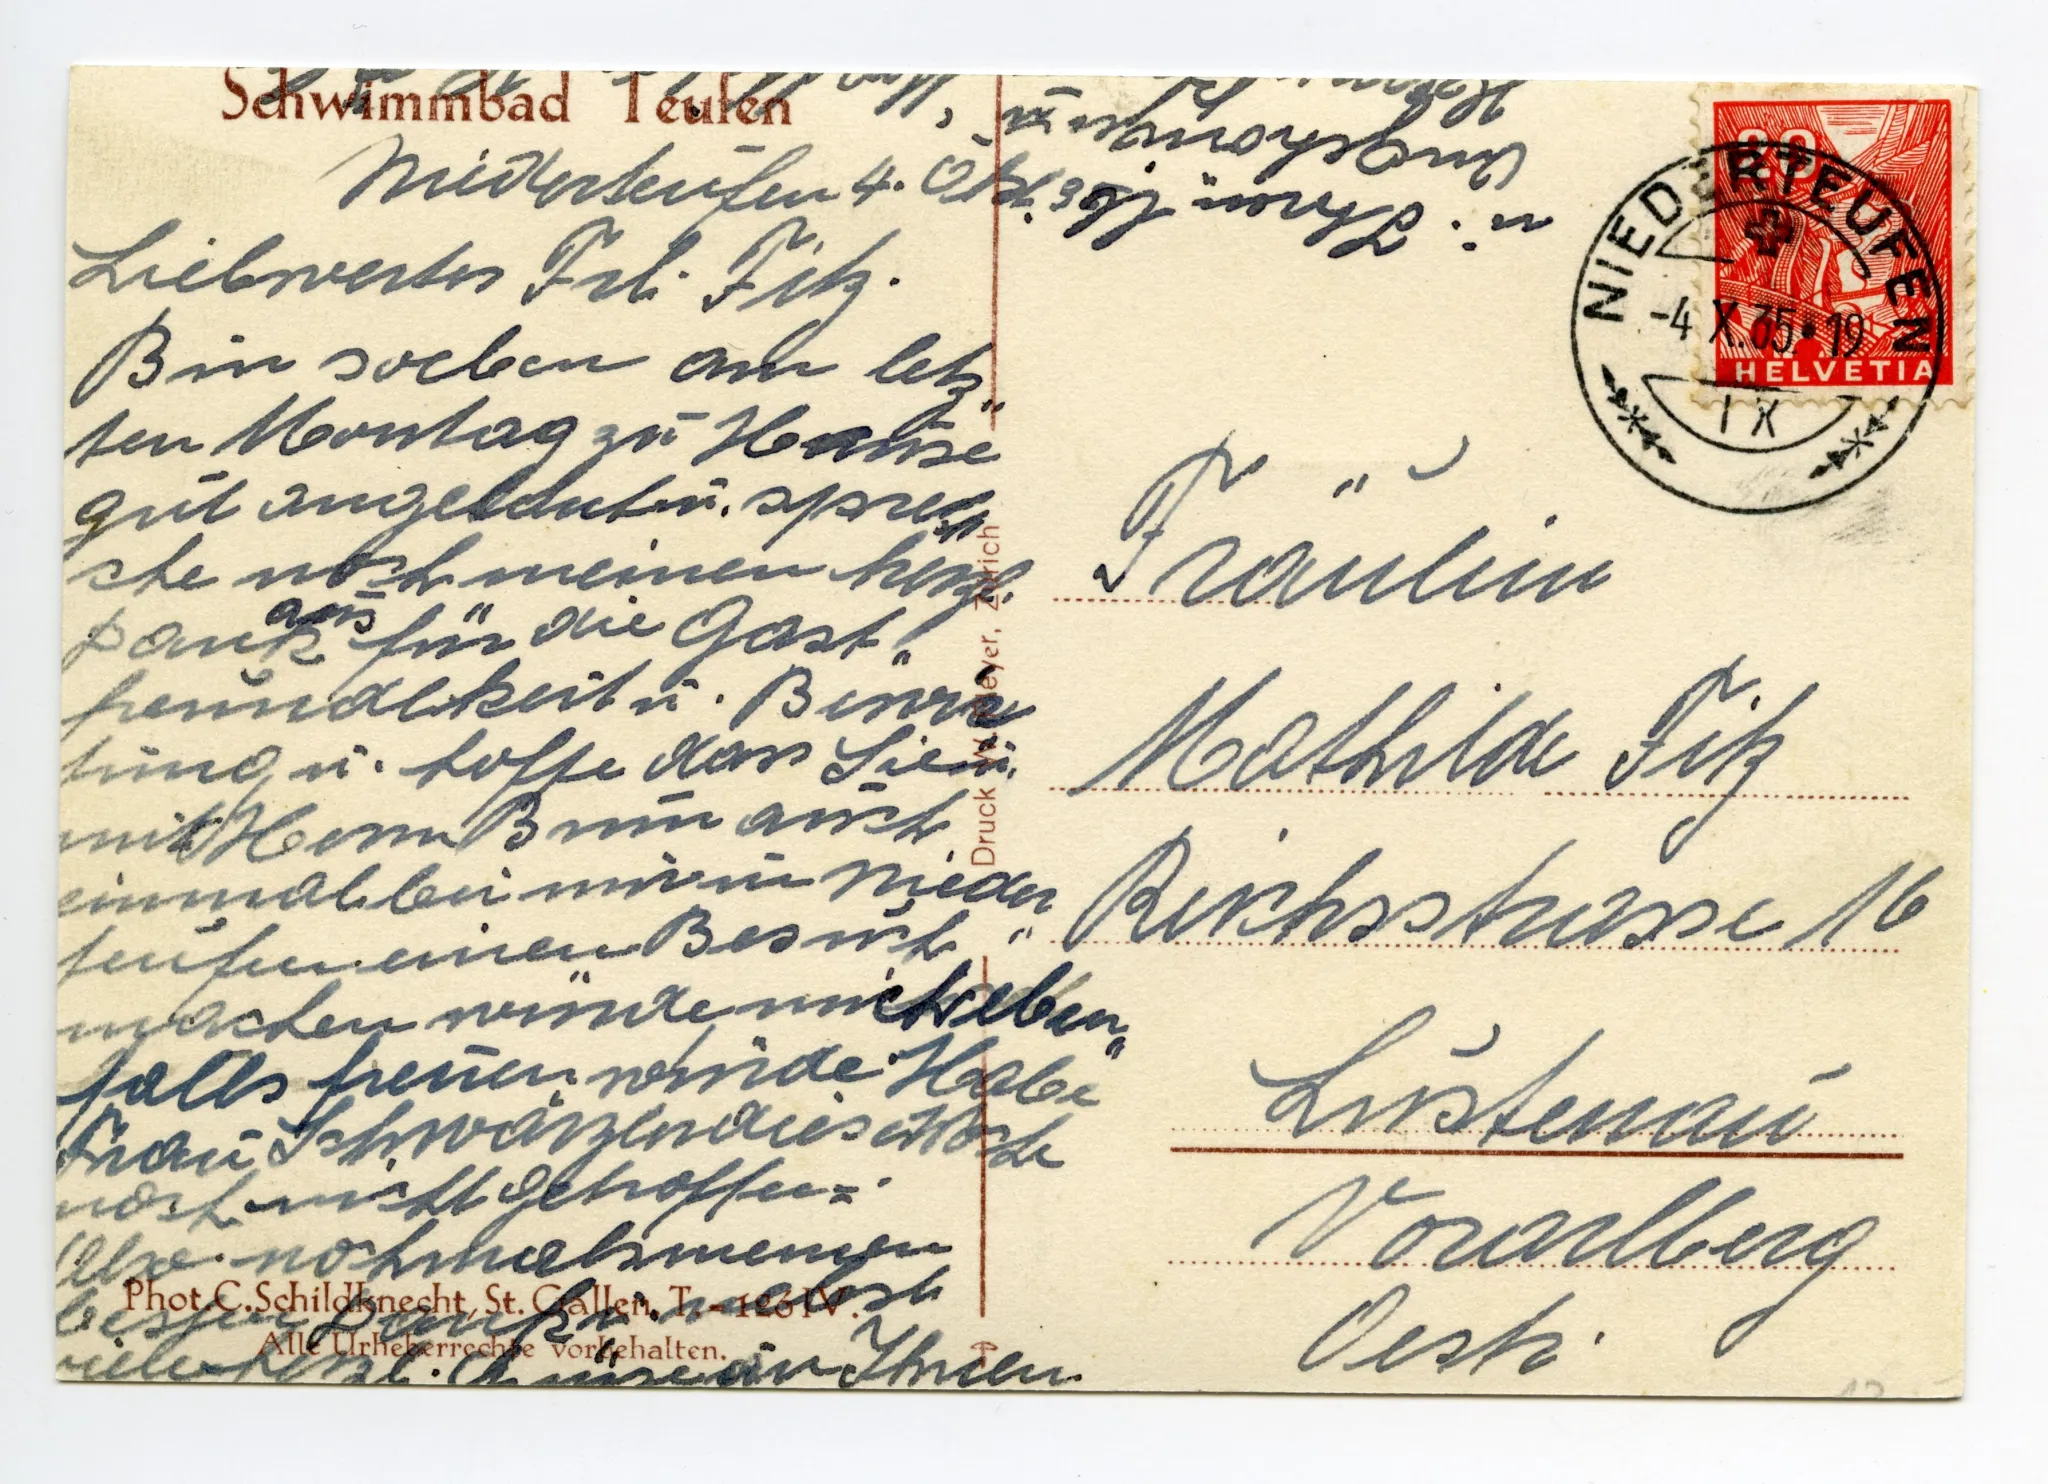 Schwimmbad Teufen
Niederteufen 4. Okt. 35.
Liebwertes Frl. Fitz.
Bin soeben am letz„
ten Montag zu Hause
gut angelant u. spre„
che noch meinen herzl.
Dank aus für die Gast„
freundlkeit u. Bewir
tung u. hoffe dass Sie u.
mit Herrn Brun auch
einmal bei mir in Nieder„
teufen einen Besuch
machen würde mich eben„
falls freuen würde. Habe
Frau Schwärzler diese Woche
noch nicht getroffen =
Also nochmals meinen
besten Dank nebst
viele herzl. Grüsse an Ihnen
u. Ihrem
Angehörigen
Phot. C. Schildknecht, St. Gallen. T. – 126 IV.
Alle Urheberrechte vorbehalten.
Druck W. Meyer, Zürich
HELVETIA
20
NIEDERTEUFEN
-4 X. 35 • 19
IX
Fräulein
Mathilde Fitz
Reichsstrasse 16
Lustenau
Vorarlberg
Oestr.